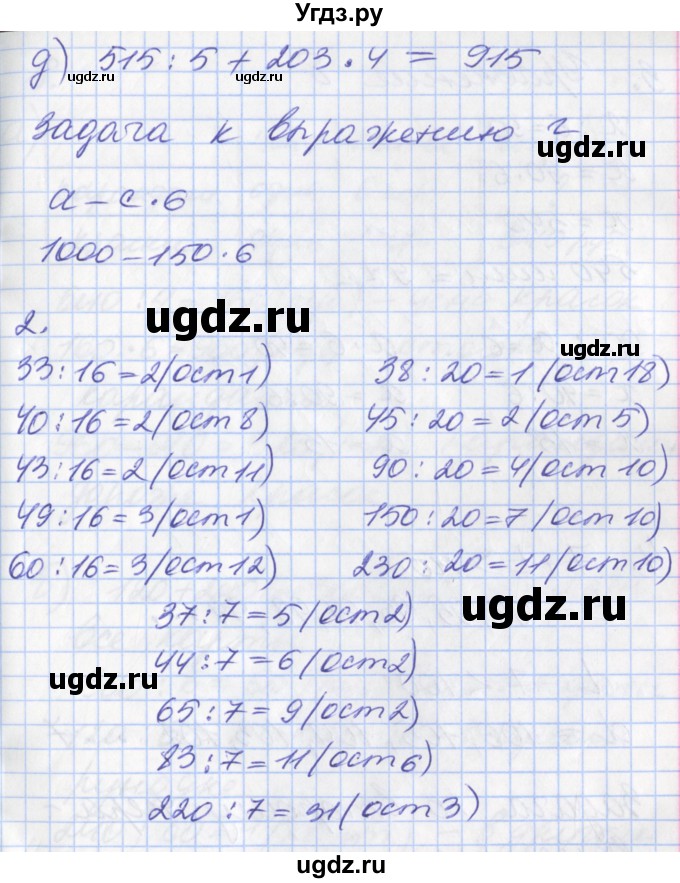 Угдз.ру
д) 515 : 5 + 203 · 4 = 915
www.ugdz.ru www.ugdz.ru www.ugdz.ru
задача к выражению г
ugdz.ru
a - c · 6
1000 - 150 · 6
ugdz.ru
2.
33 : 16 = 2 (ост 1) 38 : 20 = 1 (ост 18)
40 : 16 = 2 (ост 8) 45 : 20 = 2 (ост 5)
43 : 16 = 2 (ост 11) 90 : 20 = 4 (ост 10)
49 : 16 = 3 (ост 1) 150 : 20 = 7 (ост 10)
60 : 16 = 3 (ост 12) 230 : 20 = 11 (ост 10)
ugdz.ru
37 : 7 = 5 (ост 2)
44 : 7 = 6 (ост 2)
ugdz.ru
65 : 7 = 9 (ост 2)
83 : 7 = 11 (ост 6)
220 : 7 = 31 (ост 3)
ugdz.ru